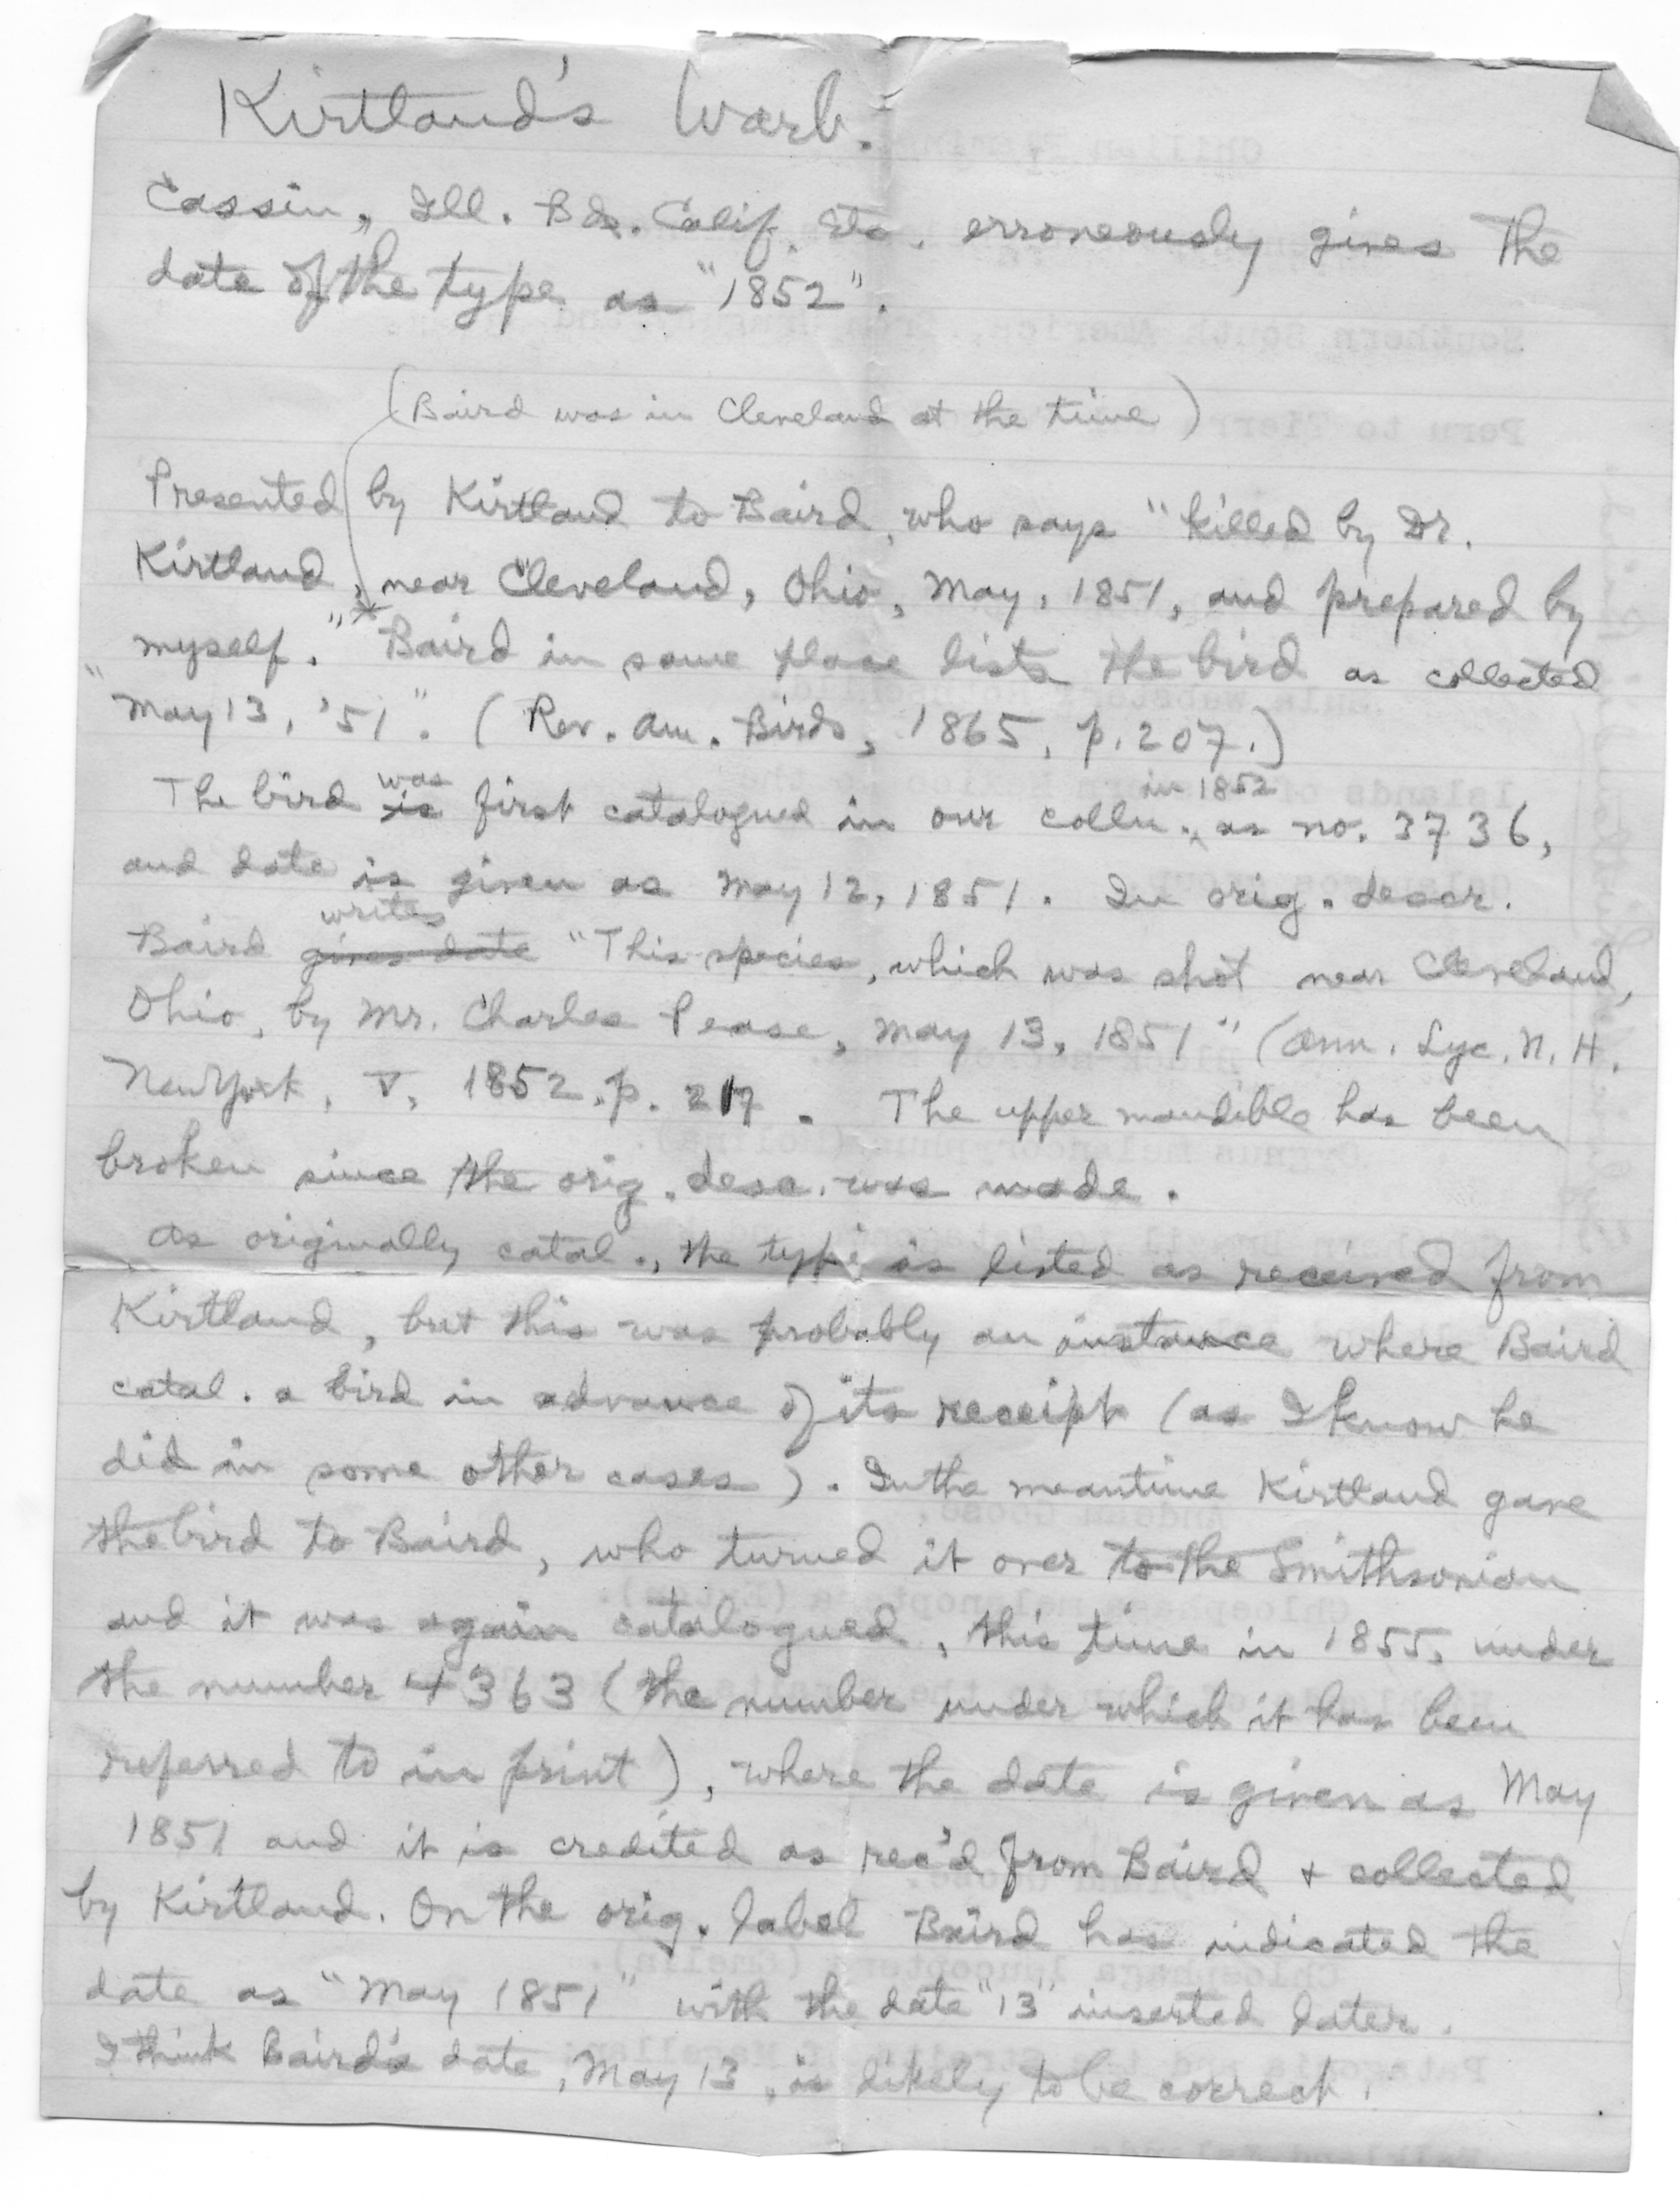 Kirtland's Warb.
Cassin, Ill. Bds. Calif. etc. erroneously gives the
date of the type as "1852".
(Baird was in Cleveland at the time)
Presented by Kirtland to Baird, who says "killed by Dr.
Kirtland, near Cleveland, Ohio, May, 1851, and prepared by
myself."* Baird in some place lists the bird as collected
"May 13, '51". (Rev. Am. Birds, 1865, p. 207.)
The bird is was first catalogued in our colln. in 1852 as no. 3736,
and date is given as May 12, 1851. In orig. descr.
Baird gives date writes "This species, which was shot near Cleveland,
Ohio, by Mr. Charles Pease, May 13, 1851" (Ann. Lyc. N. H.
New York, V, 1852, p. 217. The upper mandible has been
broken since the orig. desc. was made.
As originally catal., the type is listed as received from
Kirtland, but this was probably an instance where Baird
catal. a bird in advance of its receipt (as I know he
did in some other cases). In the meantime Kirtland gave
the bird to Baird, who turned it over to the Smithsonian
and it was again catalogued, this time in 1855, under
the number 4363 (the number under which it has been
referred to in print), where the date is given as May
1851 and it is credited as rec'd from Baird + collected
by Kirtland. On the orig. label Baird has indicated the
date as "May 1851" with the date "13" inserted later.
I think Baird's date, May 13, is likely to be correct.